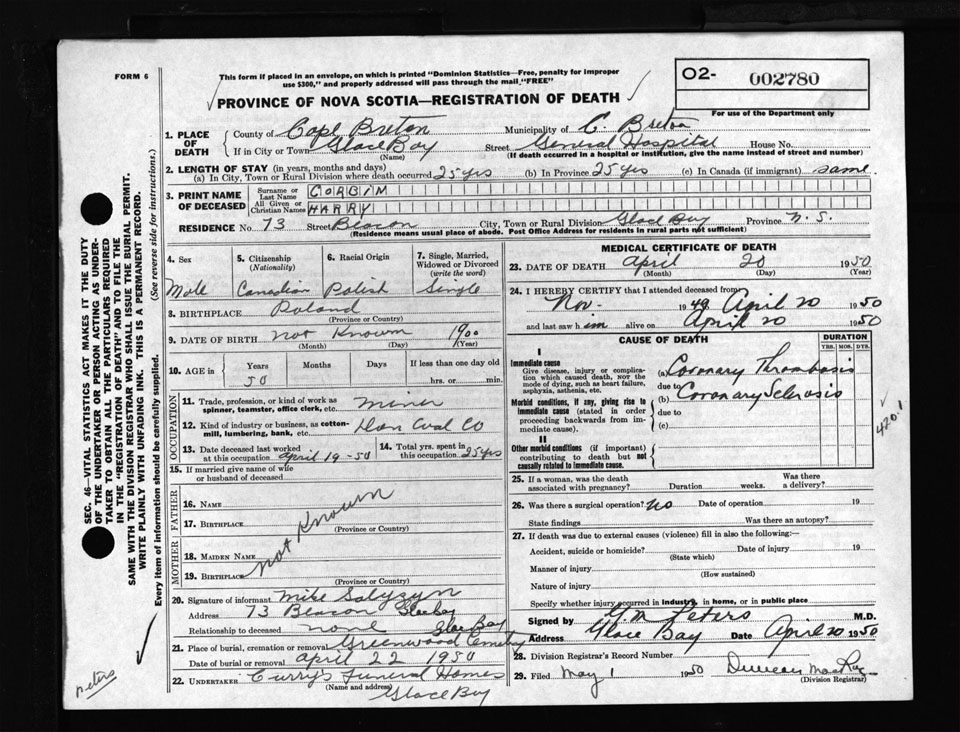 FORM 6
This form if placed in an envelope, on which is printed "Dominion Statistics—Free, penalty for improper
use $300," and properly addressed will pass through the mail "FREE"
PROVINCE OF NOVA SCOTIA—REGISTRATION OF DEATH
O2- 002780
For use of the Department only
1. PLACE OF DEATH
County of Cape Breton Municipality of C. Breton
If in City or Town Glace Bay Street General Hospital House No.
(Name) (If death occurred in a hospital or institution, give the name instead of street and number)
2. LENGTH OF STAY (in years, months and days)
(a) In City, Town or Rural Division where death occurred 25 yrs (b) In Province 25 yrs (c) In Canada (if immigrant) same
3. PRINT NAME OF DECEASED
Surname or Last Name CORBIN
All Given or Christian Names HARRY
RESIDENCE No. 73 Street Beacon City, Town or Rural Division Glace Bay Province N. S.
(Residence means usual place of abode. Post Office Address for residents in rural parts not sufficient)
4. Sex Male
5. Citizenship (Nationality) Canadian
6. Racial Origin Polish
7. Single, Married, Widowed or Divorced (write the word) Single
8. BIRTHPLACE Poland
(Province or Country)
9. DATE OF BIRTH not Known 1900
(Month) (Day) (Year)
10. AGE in Years Months Days If less than one day old
50 hrs. or min.
OCCUPATION
11. Trade, profession, or kind of work as
spinner, teamster, office clerk, etc. miner
12. Kind of industry or business, as cotton-
mill, lumbering, bank, etc. Dom Coal Co
13. Date deceased last worked
at this occupation April 19-50
14. Total yrs. spent in
this occupation 25 yrs
15. If married give name of wife
or husband of deceased
FATHER
16. NAME
17. BIRTHPLACE
(Province or Country)
not Known
MOTHER
18. MAIDEN NAME
19. BIRTHPLACE
(Province or Country)
20. Signature of informant Mike Salyzyn
Address 73 Beacon Glace bay
Relationship to deceased none Glace Bay
21. Place of burial, cremation or removal Greenwood Cemetery
Date of burial or removal April 22 1950
22. UNDERTAKER Curry's Funeral Homes
(Name and address) Glace Bay
MEDICAL CERTIFICATE OF DEATH
23. DATE OF DEATH April 20 1950
(Month) (Day) (Year)
24. I HEREBY CERTIFY that I attended deceased from
Nov. 1949 April 20 1950
and last saw him alive on April 20 1950
CAUSE OF DEATH
DURATION
YRS. MOS. DYS.
I
Immediate cause
Give disease, injury or complica-
tion which caused death, not the
mode of dying, such as heart failure,
asphyxia, asthenia, etc.
(a) Coronary Thrombosis
due to
Morbid conditions, if any, giving rise to
immediate cause (stated in order
proceeding backwards from im-
mediate cause).
(b) Coronary Sclerosis
due to
(c)
II
Other morbid conditions (if important)
contributing to death but not
causally related to immediate cause.
420.1
25. If a woman, was the death
associated with pregnancy? Duration weeks. Was there
a delivery?
26. Was there a surgical operation? No Date of operation 19
State findings Was there an autopsy?
27. If death was due to external causes (violence) fill in also the following:—
Accident, suicide or homicide? Date of injury 19
(State which)
Manner of injury
(How sustained)
Nature of injury
Specify whether injury occurred in industry, in home, or in public place
Signed by G. M. Peters M.D.
Address Glace Bay Date April 20 1950
28. Division Registrar's Record Number
29. Filed May 1 1950 Duncan
(Division Registrar)
SEC. 46—VITAL STATISTICS ACT MAKES IT THE DUTY
OF THE UNDERTAKER OR PERSON ACTING AS UNDER-
TAKER TO OBTAIN ALL THE PARTICULARS REQUIRED
IN THE "REGISTRATION OF DEATH" AND TO FILE THE
SAME WITH THE DIVISION REGISTRAR WHO SHALL ISSUE THE BURIAL PERMIT.
WRITE PLAINLY WITH UNFADING INK. THIS IS A PERMANENT RECORD.
Every item of information should be carefully supplied. (See reverse side for instructions.)
Peters